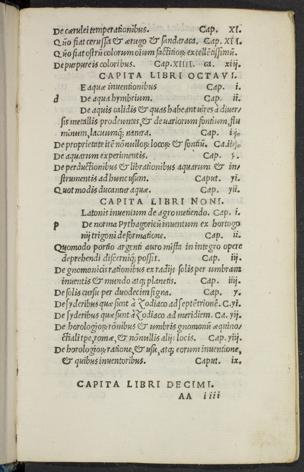 De cærulei temperationibus. Cap. XI.
Quo fiat cerussa & ærugo & sandaraca. Cap. XII.
Quo fiat ostru colorum oium factitiorum excellētissimū.
De purpureis coloribus. Cap. XIIII. ca. xiij.
CAPITA LIBRI OCTAVI.
E aquæ inuentionibus Cap. i.
d De aqua hymbrium. Cap. ij.
De aquis calidis & quas habeant uires à diuer
sis metallis prodeuntes, & de uariorum fontium, flu
minum, lacuumq; natura. Cap. iij.
De proprietate itē nōnullorū locorū & fontiū. Ca. iiij.
De aquarum experimentis. Cap. v.
De perductionibus & librationibus aquarum & in
strumentis ad hunc usum. Caput. vi.
Quot modis ducantur aquæ. Cap. vij.
CAPITA LIBRI NONI.
Latonis inuentum de agro metiendo. Cap. i.
p De norma Pythagoricū inuentum ex hortogo
nij trigoni deformatione. Cap. ij.
Quomodo portio argenti auro mista in integro opere
deprehendi discerniq; possit. Cap. iij.
De gnomonicis rationibus ex radijs solis per umbram
inuentis & mundo atq; planetis. Cap. iiij.
De solis cursu per duodecim signa. Cap. v.
De syderibus quæ sunt à Zodiaco ad septētrionē. C. vi.
De syderibus quæ sunt à Zodiaco ad meridiem. Ca. vij.
De horologiorū rōnibus & umbris gnomonū æquino
ctiali tpe, romæ, & nōnullis alijs locis. Cap. viij.
De horologiorū ratione, & usu, atq; eorum inuentione,
& quibus inuentoribus. Caput. ix.
CAPITA LIBRI DECIMI.
AA iiii